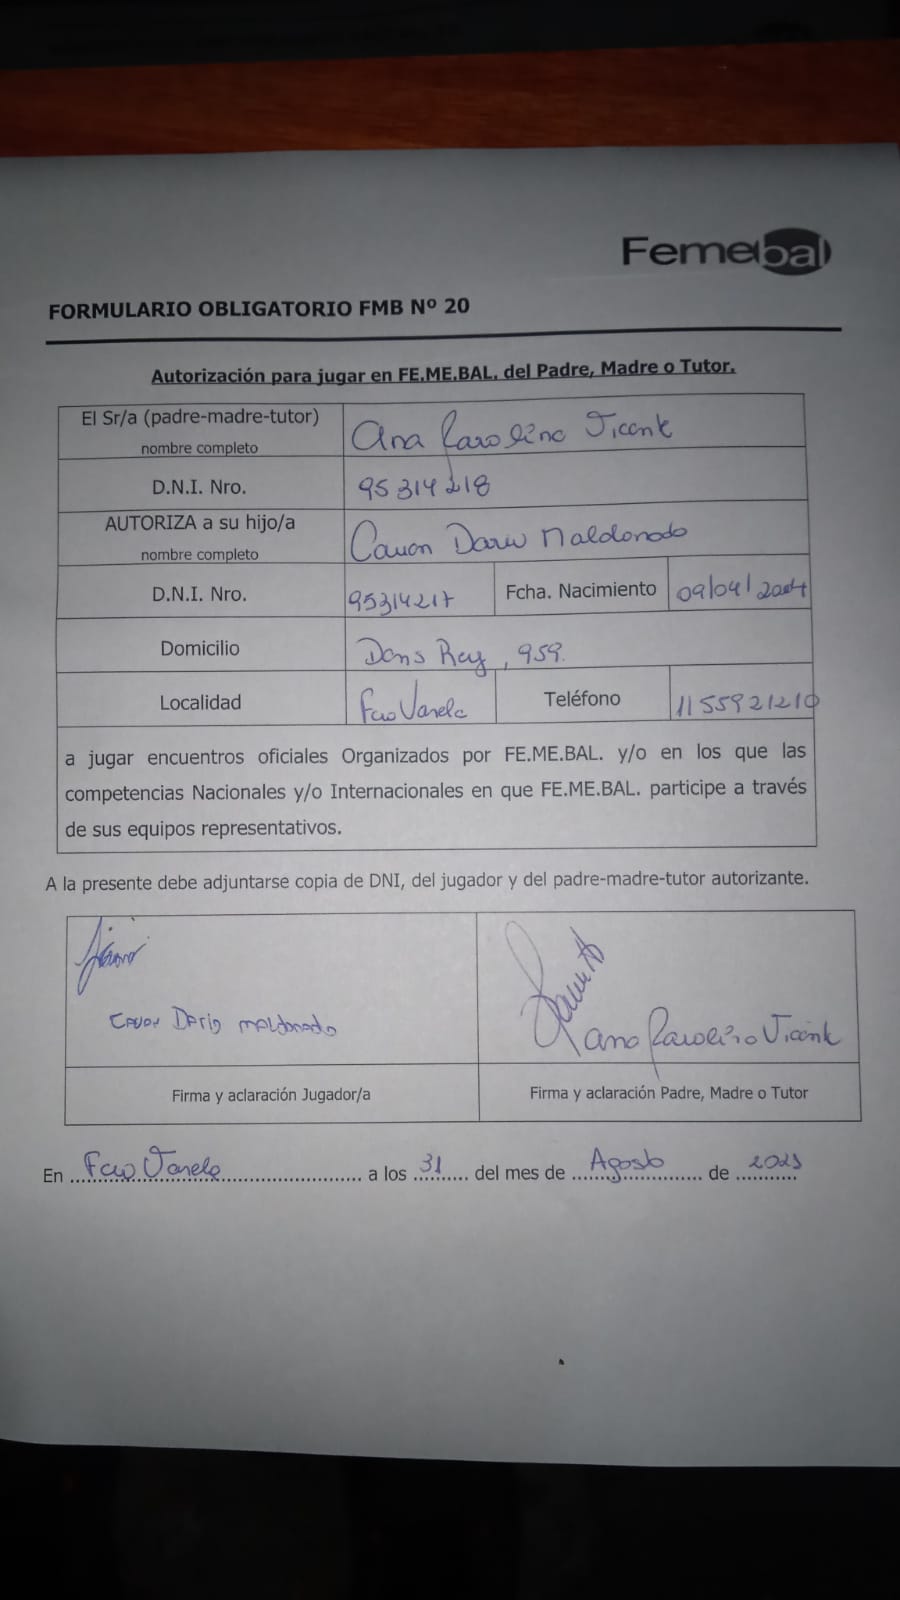 Femebal
FORMULARIO OBLIGATORIO FMB Nº 20
Autorización para jugar en FE.ME.BAL. del Padre, Madre o Tutor.
El Sr/a (padre-madre-tutor)
nombre completo
Ana Carolina Vicente
D.N.I. Nro.
95314218
AUTORIZA a su hijo/a
nombre completo
Cauan Dario Maldonado
D.N.I. Nro.
95314217
Fcha. Nacimiento
09/04/2004
Domicilio
Rey, 959.
Localidad
Fcio Varela
Teléfono
1155921210
a jugar encuentros oficiales Organizados por FE.ME.BAL. y/o en los que las
competencias Nacionales y/o Internacionales en que FE.ME.BAL. participe a través
de sus equipos representativos.
A la presente debe adjuntarse copia de DNI, del jugador y del padre-madre-tutor autorizante.
CAUAN DARIO MALDONADO
Ana Carolina Vicente
Firma y aclaración Jugador/a
Firma y aclaración Padre, Madre o Tutor
En Fcio Varela a los 31 del mes de Agosto de